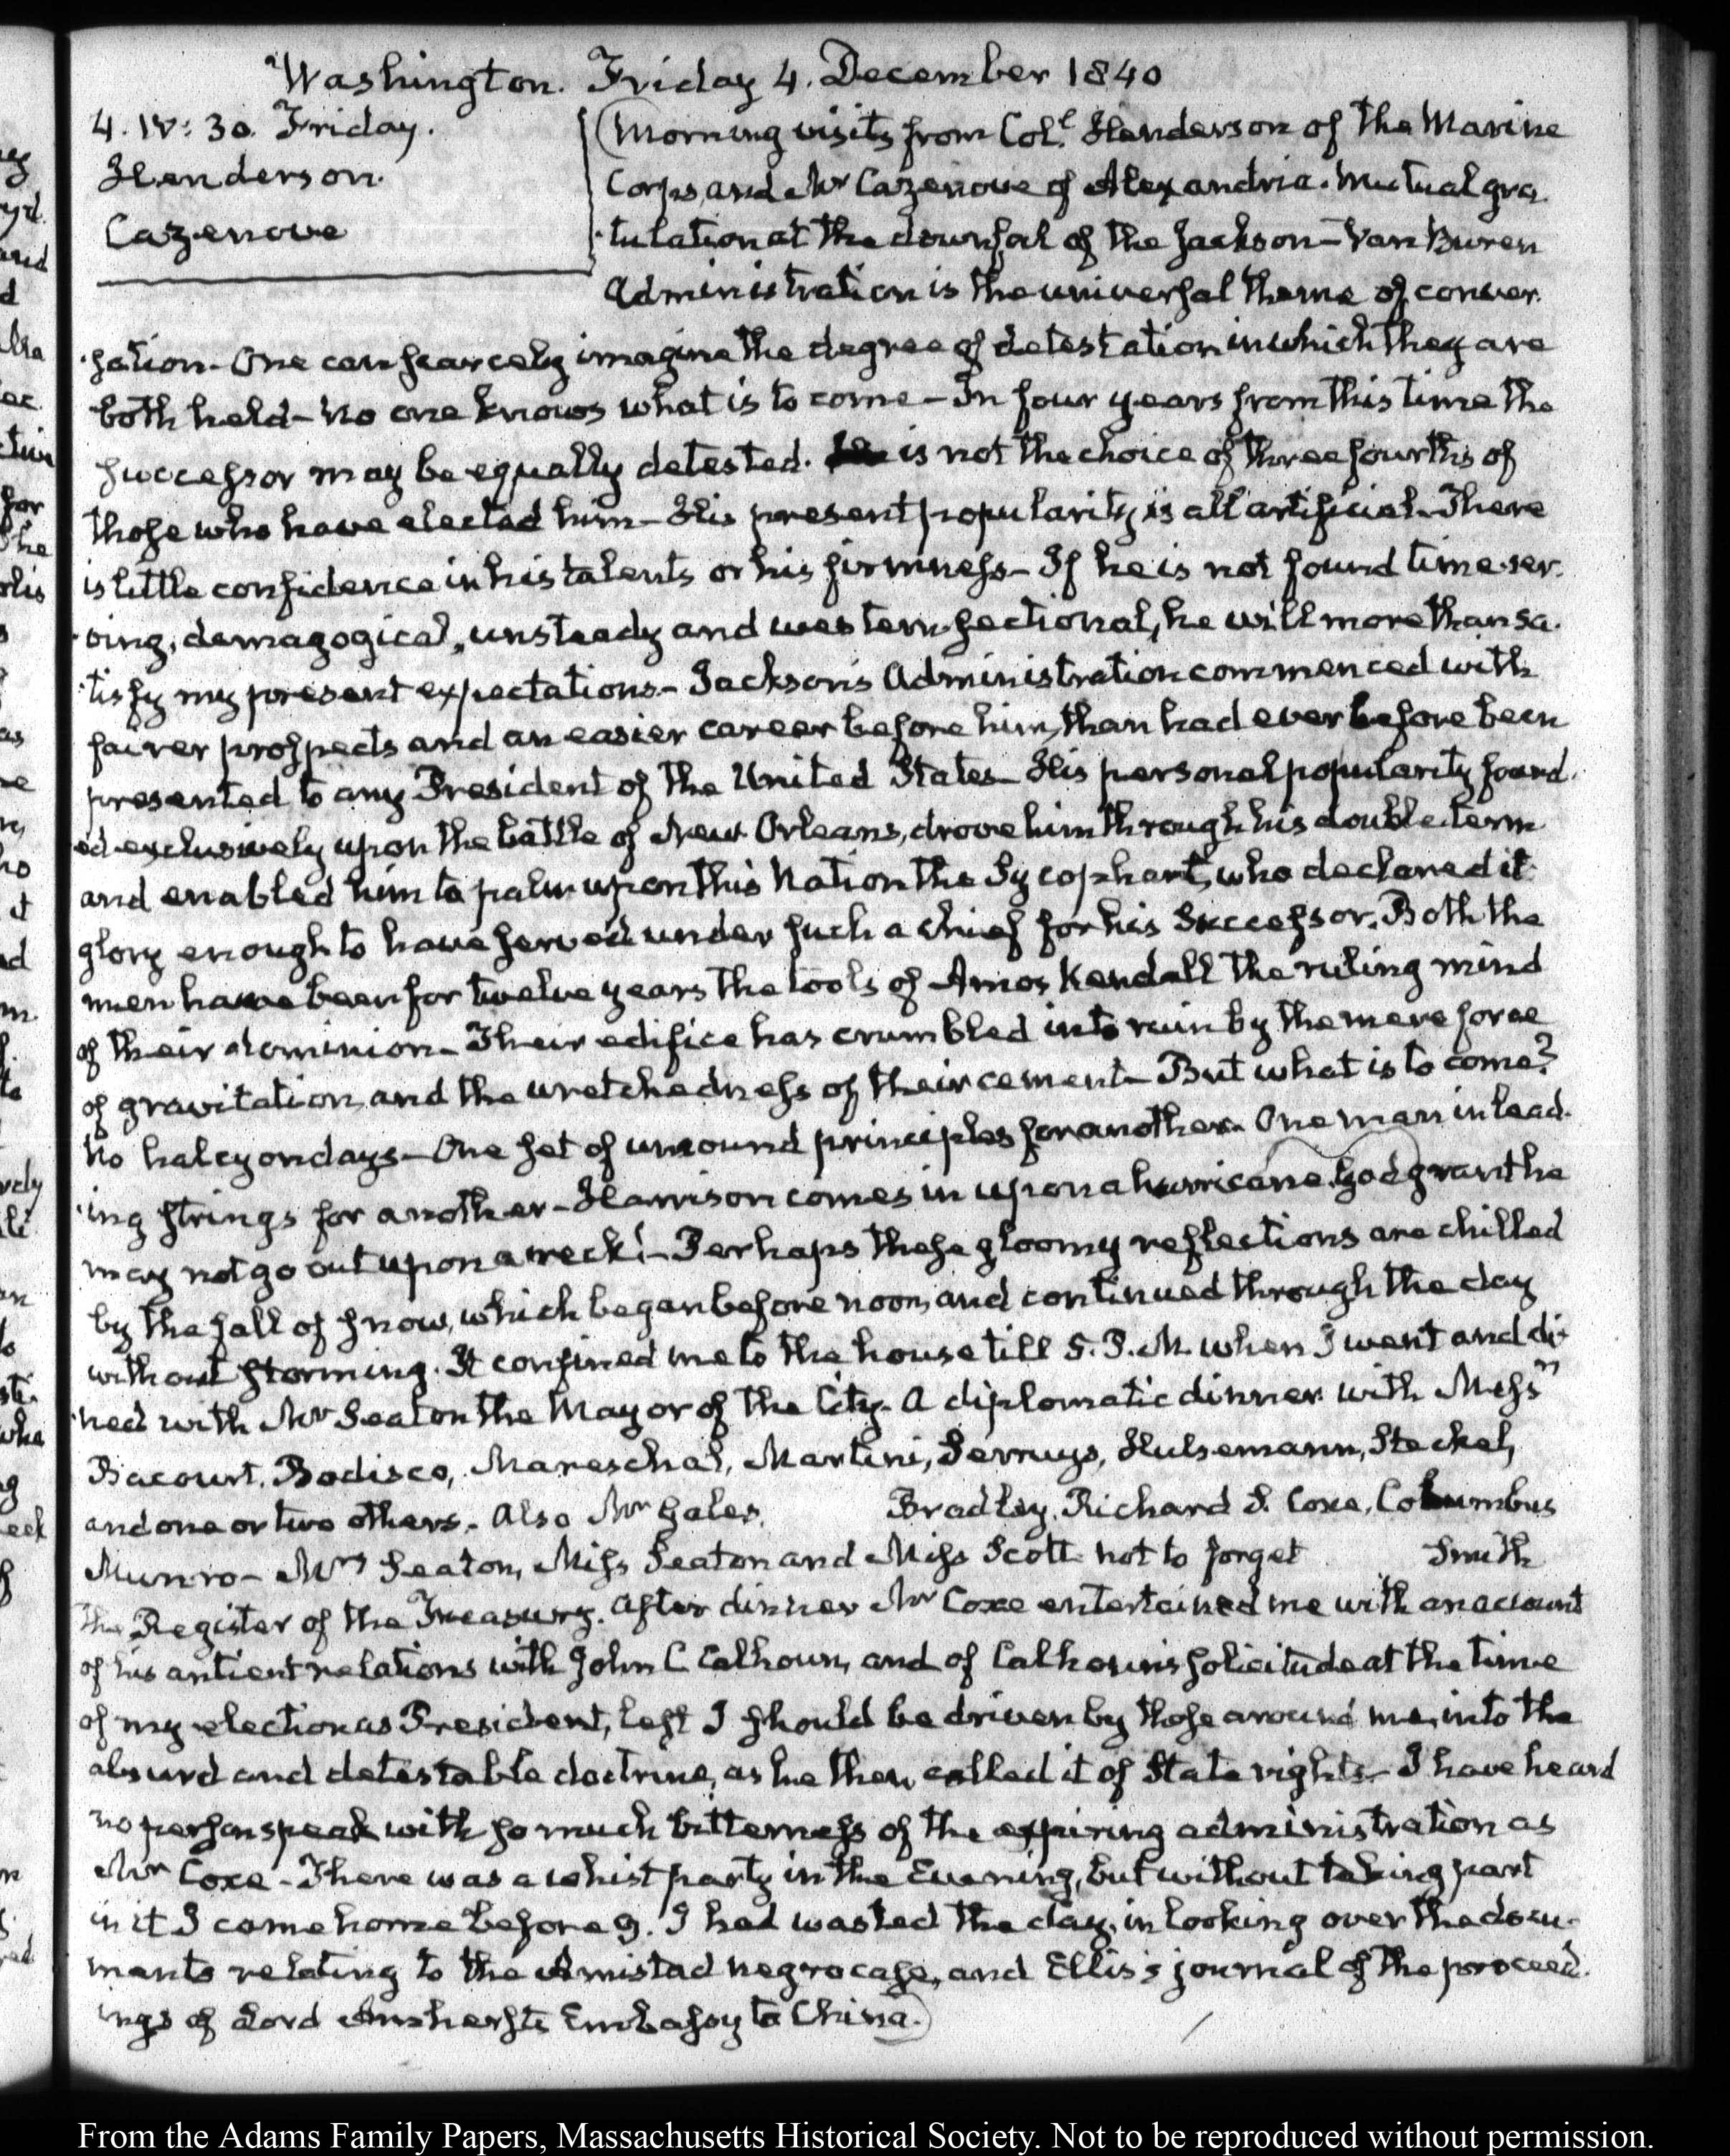 Washington. Friday 4. December 1840
4. IV: 30. Friday.
Henderson.
Cazenove
(Morning visits from Col.l Henderson of the Marine
Corps, and Mr Cazenove of Alexandria. Mutual gra
tulation at the downfal of the Jackson-Van Buren
Administration is the universal theme of conver.
sation- One can scarcely imagine the degree of detestation in which they are
both held- No one knows what is to come- In four years from this time the
successor may be equally detested. He is not the choice of three fourths of
those who have elected him- His present popularity is all artificial. There
is little confidence in his talents or his firmness- If he is not found time-ser.
ving, demagogical, unsteady and western-sectional, he will more than sa.
tisfy my present expectations- Jackson's Administration commenced with
fairer prospects and an easier career before him, than had ever before been
presented to any President of the United States- His personal popularity found.
ed exclusively upon the battle of New Orleans, drove him through his double term
and enabled him to palm upon this Nation the Sycophant, who declared it
glory enough to have served under such a chief for his Successor. Both the
men have been for twelve years the tools of Amos Kendall the ruling mind
of their dominion- Their edifice has crumbled into ruin by the mere force
of gravitation, and the wretchedness of their cement- But what is to come?
No halcyon days- One set of unsound principles for another- One man in lead.
ing strings for another- Harrison comes in upon a hurricane. God grant he
may not go out upon a wreck!- Perhaps these gloomy reflections are chilled
by the fall of snow, which began before noon, and continued through the day
without storming. It confined me to the house till 5. P.M. when I went and di-
ned with Mr Seaton the Mayor of the City- A diplomatic dinner with Messrs
Bacourt, Bodisco, Mareschal, Martini, Serruys, Hulsemann, Steckel,
and one or two others- Also Mr Gales, Bradley, Richard S. Coxe, Columbus
Munro- Mrs Seaton, Miss Seaton and Miss Scott- not to forget Smith
The Register of the Treasury. After dinner Mr Coxe entertained me with an account
of his antient relations with John C Calhoun, and of Calhoun's solicitude at the time
of my election as President, lest I should be driven by those around me, into the
absurd and detestable doctrine, as he then called it of State rights- I have heard
no person speak with so much bitterness of the expiring administration as
Mr Coxe- There was a whist party in the Evening, but without taking part
in it I came home before 9. I had wasted the day, in looking over the docu-
ments relating to the Amistad negro case, and Ellis's journal of the proceed.
ings of Lord Amherst's Embassy to China.)
From the Adams Family Papers, Massachusetts Historical Society. Not to be reproduced without permission.